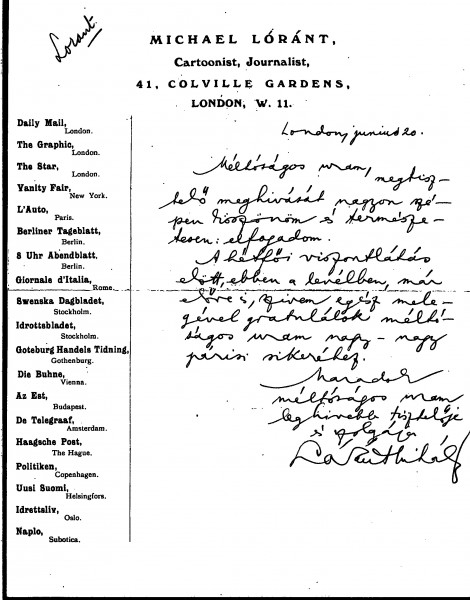 Lóránt.
MICHAEL LÓRÁNT,
Cartoonist, Journalist,
41, COLVILLE GARDENS,
LONDON, W. 11.
Daily Mail,
London.
The Graphic,
London.
The Star,
London.
Vanity Fair,
New York.
L'Auto,
Paris.
Berliner Tageblatt,
Berlin.
8 Uhr Abendblatt,
Berlin.
Giornale d'Italia,
Rome.
Swenska Dagbladet,
Stockholm.
Idrottsbladet,
Stockholm.
Goteburg Handels Tidning,
Gothenburg.
Die Buhne,
Vienna.
Az Est,
Budapest.
De Telegraaf,
Amsterdam.
Haagsche Post,
The Hague.
Politiken,
Copenhagen.
Uusi Suomi,
Helsingfors.
Idrettsliv,
Oslo.
Naplo,
Subotica.
London, junius 20.
Méltóságos uram,
megtisz-
telő meghivását nagyon szé-
pen köszönöm és természe-
tesen: elfogadom.
A hétfői viszontlátás
előtt, ebben a levélben, már
előre is, szivem egész mele-
gével gratulálok méltó-
ságos uram nagy-nagy
párisi sikeréhez.
Maradok
méltóságos uram
leghivebb tisztelője
és szolgája
Lóránt Mihály